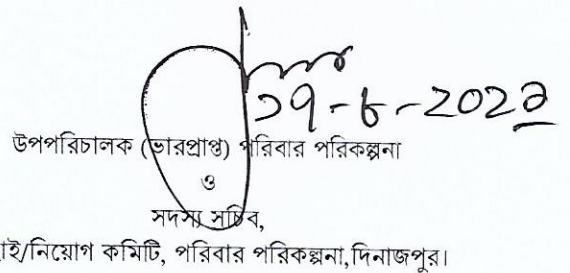 ১৭-৮-২০২২
উপপরিচালক (ভারপ্রাপ্ত) পরিবার পরিকল্পনা
ও
সদস্য সচিব,
াই/নিয়োগ কমিটি, পরিবার পরিকল্পনা,দিনাজপুর।